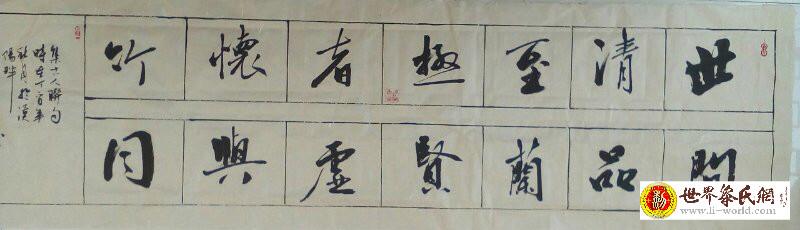 世間
清品
至蘭
極賢
者虛
懷與
竹同
集古人聯句
時在丁酉年
秋月於漢
陽
世界黎氏網
www.li-world.com